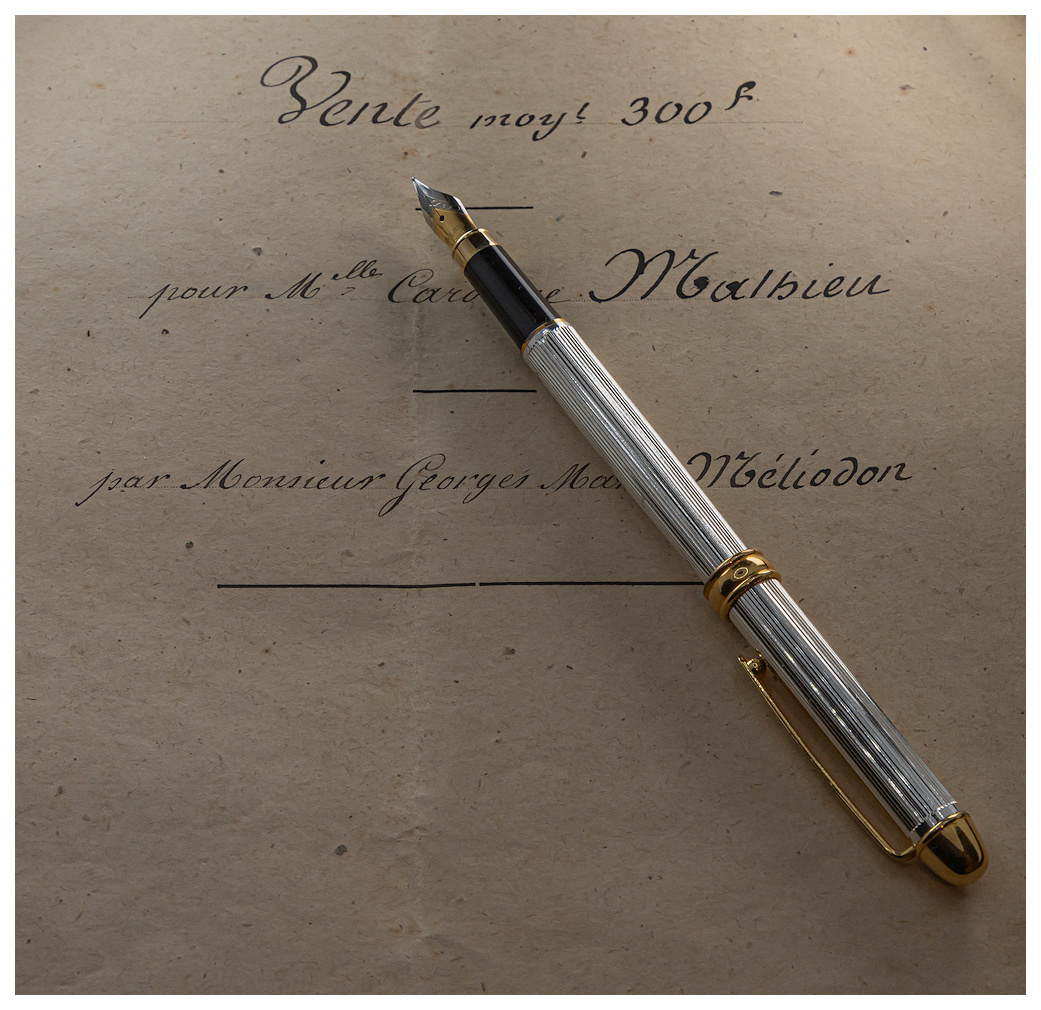 Vente moyt 300 f
pour Melle Mathieu
par Monsieur Georges Méliodon